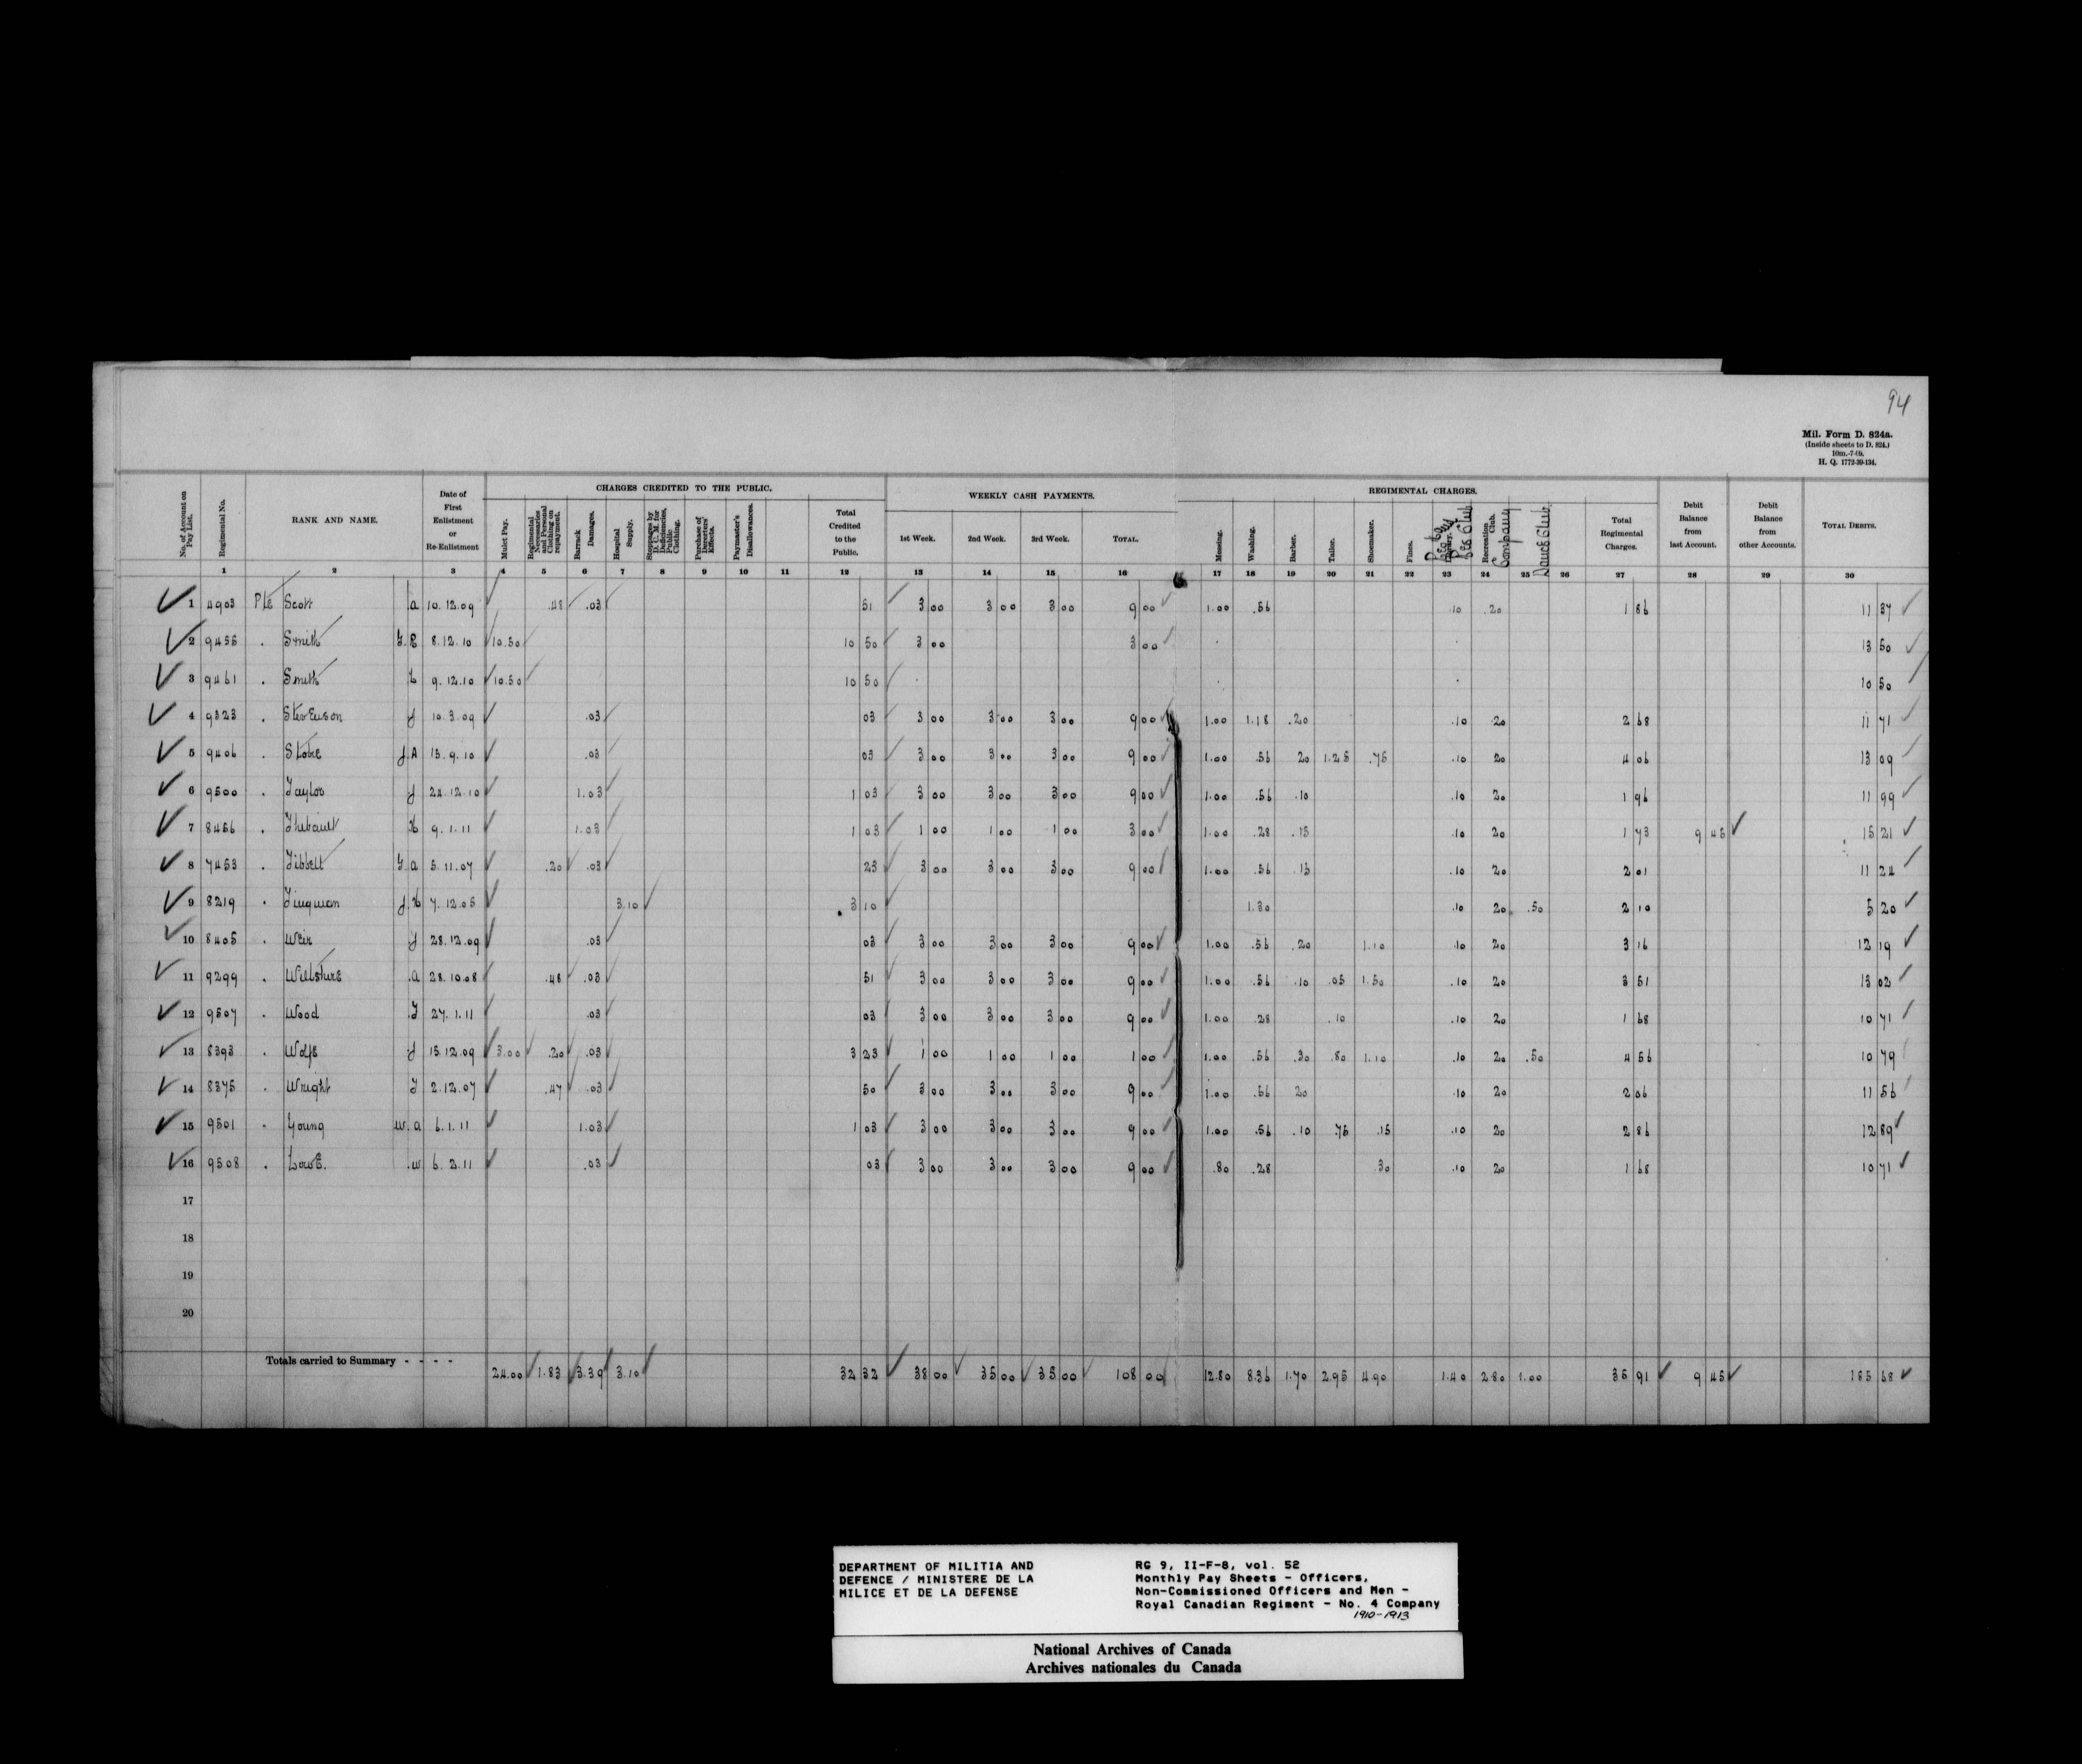 94
Mil. Form D. 824a.
(Inside sheets to D. 824.)
10m.-7-09.
H. Q. 1772-39-134.
No. of Account on Pay List. Regimental No. RANK AND NAME. Date of First Enlistment or Re-Enlistment CHARGES CREDITED TO THE PUBLIC. WEEKLY CASH PAYMENTS. REGIMENTAL CHARGES. Debit Balance from last Account. Debit Balance from other Accounts. TOTAL DEBITS.
Mulct Pay. Regimental Necessaries and Personal Clothing on repayment. Barrack Damages. Hospital Supply. Stoppages by D. C. M. for Deficiencies, Public Clothing. Purchase of Deserters' Effects. Paymaster's Disallowances. Total Credited to the Public. 1st Week. 2nd Week. 3rd Week. TOTAL. Messing. Washing. Barber. Tailor. Shoemaker. Fines. Library. Recreation Club. Company Dance Club. Total Regimental Charges.
1 2 3 4 5 6 7 8 9 10 11 12 13 14 15 16 17 18 19 20 21 22 23 24 25 26 27 28 29 30
1 4903 Pte Scott a 10.12.09 .48 .03 51 3 00 3 00 3 00 9 00 1.00 .56 .10 .20 1 86 11 37
2 9455 . Smith 8.12.10 10.50 10 50 3 00 3 00 13 50
3 9461 . Smith 9.12.10 10.50 10 50 10 50
4 9323 . Stevenson J 10.3.09 .03 03 3 00 3 00 3 00 9 00 1.00 1.18 .20 .10 20 2 68 11 71
5 9406 . Stobe J.A 13.9.10 .03 03 3 00 3 00 3 00 9 00 1.00 .56 20 1.25 .75 .10 20 4 06 13 09
6 9500 . Taylor J 24.12.10 1.03 1 03 3 00 3 00 3 00 9 00 1.00 .56 .10 .10 20 1 96 11 99
7 8456 . Thibault 9.1.11 1.03 1 03 1 00 1 00 1 00 3 00 1.00 .28 .15 .10 20 1 73 9 45 15 21
8 7453 . Tibbett a 5.11.07 .20 .03 23 3 00 3 00 3 00 9 00 1.00 .56 .15 .10 20 2 01 11 24
9 8219 . 7.12.05 3.10 3 10 1.30 .10 20 .50 2 10 5 20
10 8405 . Weir J 28.12.09 .03 03 3 00 3 00 3 00 9 00 1.00 .56 .20 1.10 .10 20 3 16 12 19
11 9299 . Willshire .a 28.10.08 .48 .03 51 3 00 3 00 3 00 9 00 1.00 .56 .10 .05 1.50 .10 20 3 51 13 02
12 9507 . Wood 27.1.11 .03 03 3 00 3 00 3 00 9 00 1.00 .28 .10 .10 20 1 68 10 71
13 8393 . Wolfe J 15.12.09 3.00 .20 .03 3 23 1 00 1 00 1 00 1 00 1.00 .56 .30 .80 1.10 .10 20 .50 4 56 10 79
14 8375 . Wright 2.12.07 .47 .03 50 3 00 3 00 3 00 9 00 1.00 .56 20 .10 20 2 06 11 56
15 9501 . Young W.a 6.1.11 1.03 1 03 3 00 3 00 3 00 9 00 1.00 .56 .10 .75 .15 .10 20 2 86 12 89
16 9508 . Lowe. .W 6.2.11 .03 03 3 00 3 00 3 00 9 00 .80 .28 .30 .10 20 1 68 10 71
17
18
19
20
Totals carried to Summary - - - - 24.00 1.83 3.39 3.10 32 32 38 00 35 00 35 00 108 00 12.80 8.36 1.70 2.95 4.90 1.40 2.80 1.00 35 91 9 45 185 68
DEPARTMENT OF MILITIA AND
DEFENCE / MINISTERE DE LA
MILICE ET DE LA DEFENSE
RG 9, II-F-8, vol. 52
Monthly Pay Sheets - Officers,
Non-Commissioned Officers and Men -
Royal Canadian Regiment - No. 4 Company
1910-1913
National Archives of Canada
Archives nationales du Canada